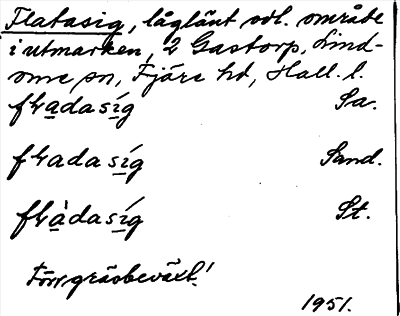 Flatasig, låglänt odl. område
i utmarken, 2 Gastorp, Lind-
ome sn, Fjäre hd, Hall. l.
fɫadasíg Sa.
fɫadasíg Sand.
fɫàdasíg St.
Förr gräsbeväxt!
1951.